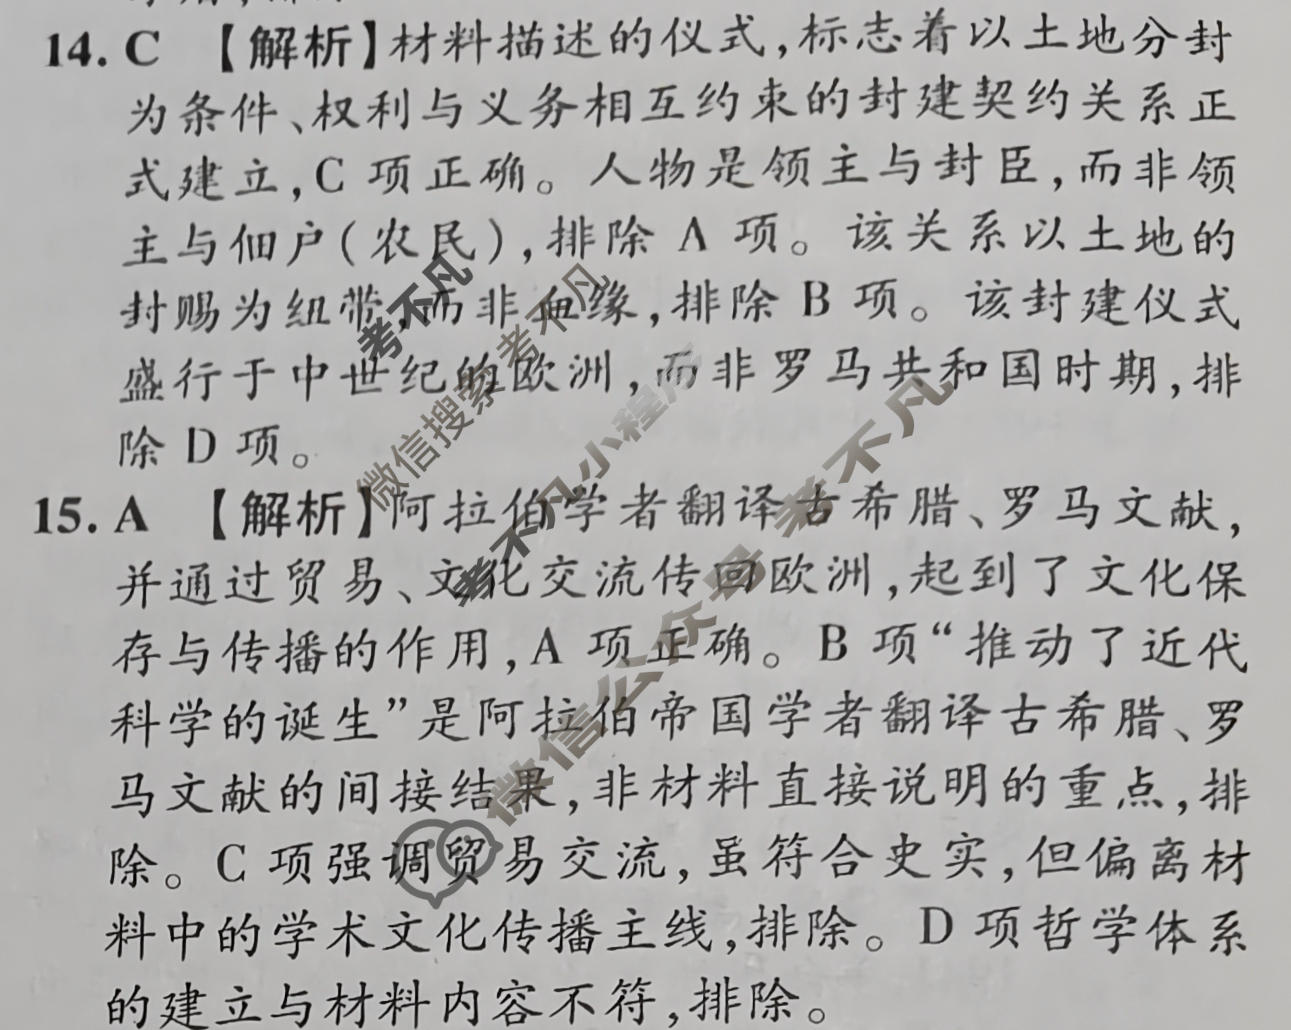 14. C 【解析】材料描述的仪式,标志着以土地分封
为条件、权利与义务相互约束的封建契约关系正
式建立,C 项正确。人物是领主与封臣,而非领
主与佃户(农民),排除 A 项。该关系以土地的
封赐为纽带,而非血缘,排除 B 项。该封建仪式
盛行于中世纪的欧洲,而非罗马共和国时期,排
除 D 项。
15. A 【解析】阿拉伯学者翻译古希腊、罗马文献,
并通过贸易、文化交流传回欧洲,起到了文化保
存与传播的作用,A 项正确。B 项“推动了近代
科学的诞生”是阿拉伯帝国学者翻译古希腊、罗
马文献的间接结果,非材料直接说明的重点,排
除。C 项强调贸易交流,虽符合史实,但偏离材
料中的学术文化传播主线,排除。D 项哲学体系
的建立与材料内容不符,排除。
考不凡
微信搜索 考不凡
考不凡小程序
微信公众号 考不凡